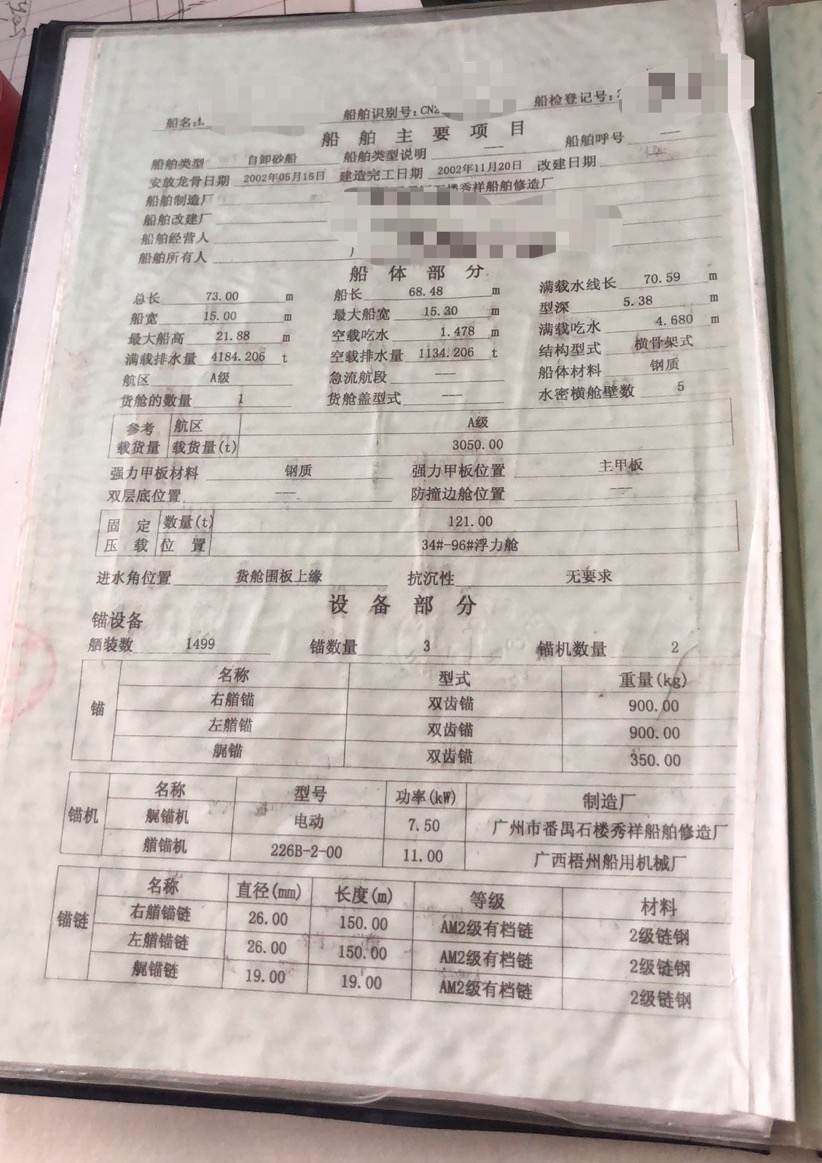 船名:
船舶识别号:CN2
船检登记号:
船舶主要项目
船舶类型 自卸砂船 船舶类型说明 —— 船舶呼号 ——
安放龙骨日期 2002年05月15日 建造完工日期 2002年11月20日 改建日期
船舶制造厂 石楼秀祥船舶修造厂
船舶改建厂
船舶经营人
船舶所有人
船体部分
总长 73.00 m 船长 68.48 m 满载水线长 70.59 m
船宽 15.00 m 最大船宽 15.30 m 型深 5.38 m
最大船高 21.88 m 空载吃水 1.478 m 满载吃水 4.680 m
满载排水量 4184.206 t 空载排水量 1134.206 t 结构型式 横骨架式
航区 A级 急流航段 —— 船体材料 钢质
货舱的数量 1 货舱盖型式 —— 水密横舱壁数 5
参考载货量 航区 A级
载货量(t) 3050.00
强力甲板材料 钢质 强力甲板位置 主甲板
双层底位置 —— 防撞边舱位置 ——
固定压载 数量(t) 121.00
位置 34#-96#浮力舱
进水角位置 货舱围板上缘 抗沉性 无要求
设备部分
锚设备
舾装数 1499 锚数量 3 锚机数量 2
锚 名称 型式 重量(kg)
右艏锚 双齿锚 900.00
左艏锚 双齿锚 900.00
艉锚 双齿锚 350.00
锚机 名称 型号 功率(kW) 制造厂
艉锚机 电动 7.50 广州市番禺石楼秀祥船舶修造厂
艏锚机 226B-2-00 11.00 广西梧州船用机械厂
锚链 名称 直径(mm) 长度(m) 等级 材料
右艏锚链 26.00 150.00 AM2级有档链 2级链钢
左艏锚链 26.00 150.00 AM2级有档链 2级链钢
艉锚链 19.00 19.00 AM2级有档链 2级链钢